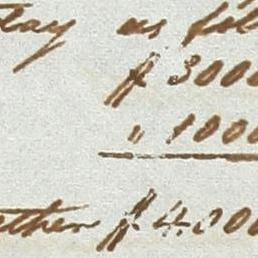 day as fol
$ 3000
" 1000
ether $ 4000